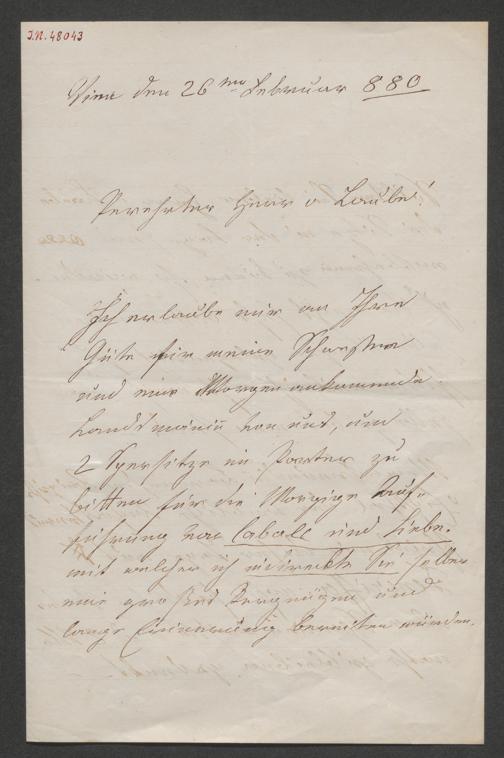 I.N. 48043
Wien den 26ten Februar 880
Verehrter Herr v Laube!
Ich erlaube mir an Ihre
Güte für meine Schwester
und eine Morgen ankommende
Landsmänin von uns, um
2 Spersitze im Parter zu
bitten für die Morgige Auf-
führung von Cabale und Liebe.
mit welcher ich indirekte Sie selber
mir großes Vergnügen und
lange Erinnerung bereiten würden.